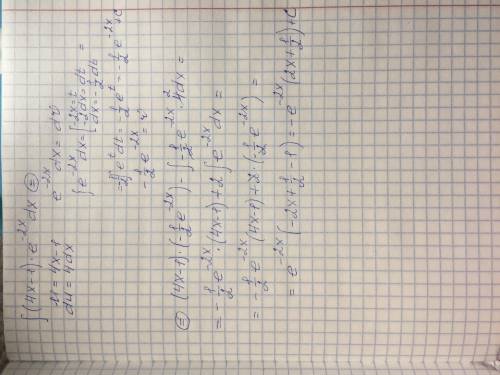 ∫(4x-1)·e^{-2x} dx ⊜
u = 4x-1
du = 4dx
e^{-2x} dx = dv
∫e^{-2x} dx = [-2x = t
-2dx = dt
dx = -1/2 dt] =
= -1/2 ∫e^t dt = -1/2 e^t = -1/2 e^{-2x} + C
-1/2 e^{-2x} = v
⊜ (4x-1)·(-1/2 e^{-2x}) - ∫-1/2 e^{-2x}·4dx =
= -1/2 e^{-2x}·(4x-1) + 2∫e^{-2x} dx =
= -1/2 e^{-2x}(4x-1) + 2·(-1/2 e^{-2x}) =
= e^{-2x}(-2x + 1/2 - 1) = -e^{-2x}(2x + 1/2) + C